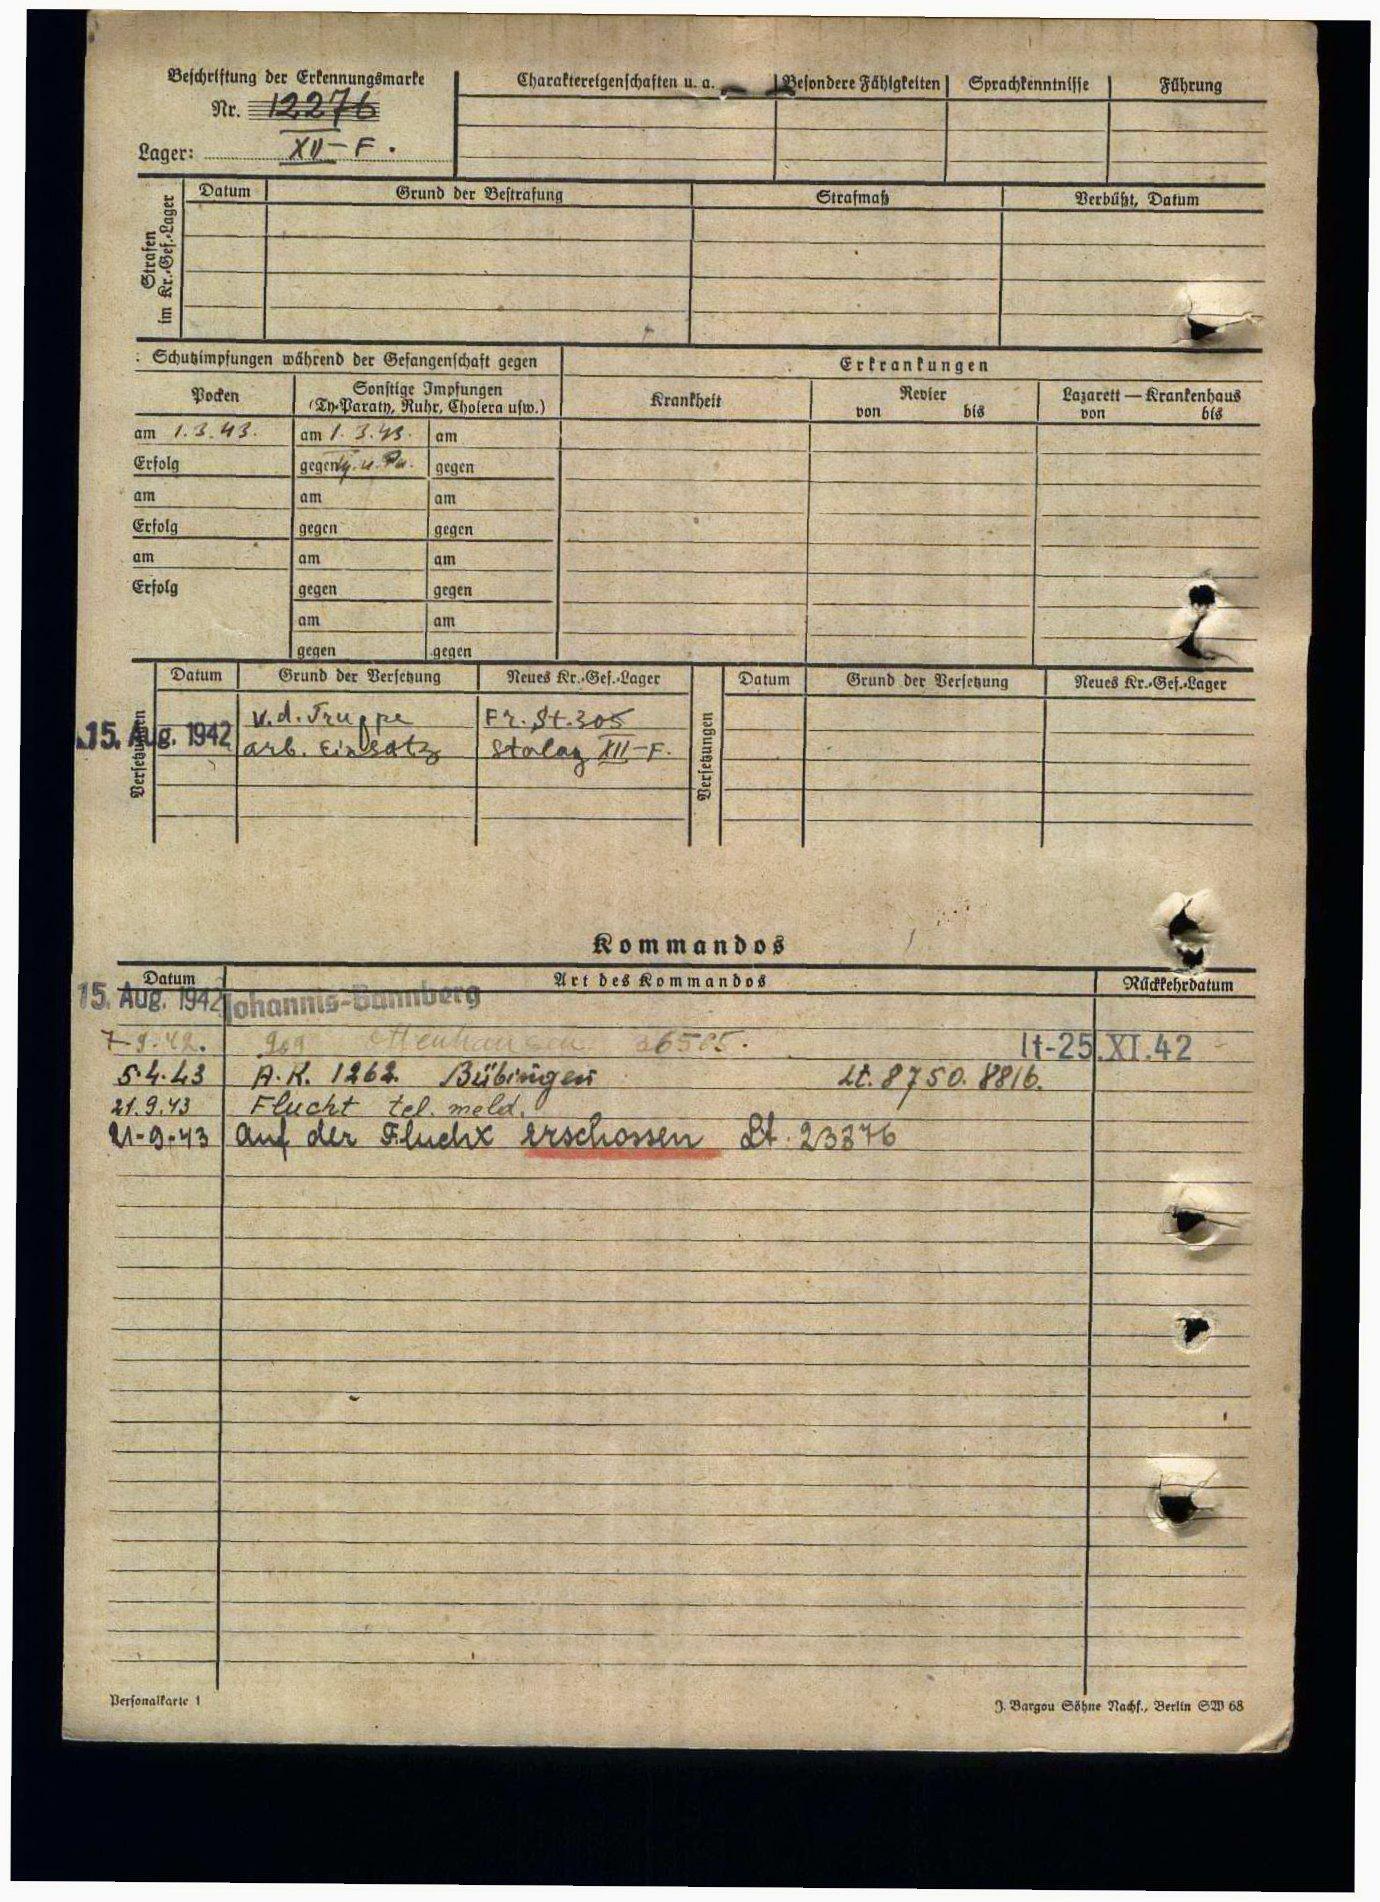 Beschriftung der Erkennungsmarke
Nr. 12276
Lager: XII-F.
Charaktereigenschaften u. a. Besondere Fähigkeiten Sprachkenntnisse Führung
Strafen im Kr.-Gef.-Lager
Datum Grund der Bestrafung Strafmaß Verbüßt, Datum
Schutzimpfungen während der Gefangenschaft gegen
Erkrankungen
Pocken Sonstige Impfungen Krankheit Revier Lazarett — Krankenhaus
(Ty-Paraty, Ruhr, Cholera usw.) von bis von bis
am 1.3.43. am 1.3.43. am
Erfolg gegen Ty. u. Pa. gegen
am am am
Erfolg gegen gegen
am am am
Erfolg gegen gegen
am am
gegen gegen
Versetzungen
Datum Grund der Versetzung Neues Kr.-Gef.-Lager
v. d. Truppe Fr. St. 305
15. Aug. 1942 arb. Einsatz Stalag XII-F.
Versetzungen
Datum Grund der Versetzung Neues Kr.-Gef.-Lager
Kommandos
Datum Art des Kommandos Rückkehrdatum
15. Aug. 1942 Johannis-Bannberg
7-9.42. 6505. lt-25.XI.42
5.4.43 A.K. 1262. Bübingen Lt. 8750. 8816.
21.9.43 Flucht tel. meld.
21-9-43 Auf der Flucht erschossen Lt. 23376
Personalkarte 1
J. Bargou Söhne Nachf., Berlin SW 68